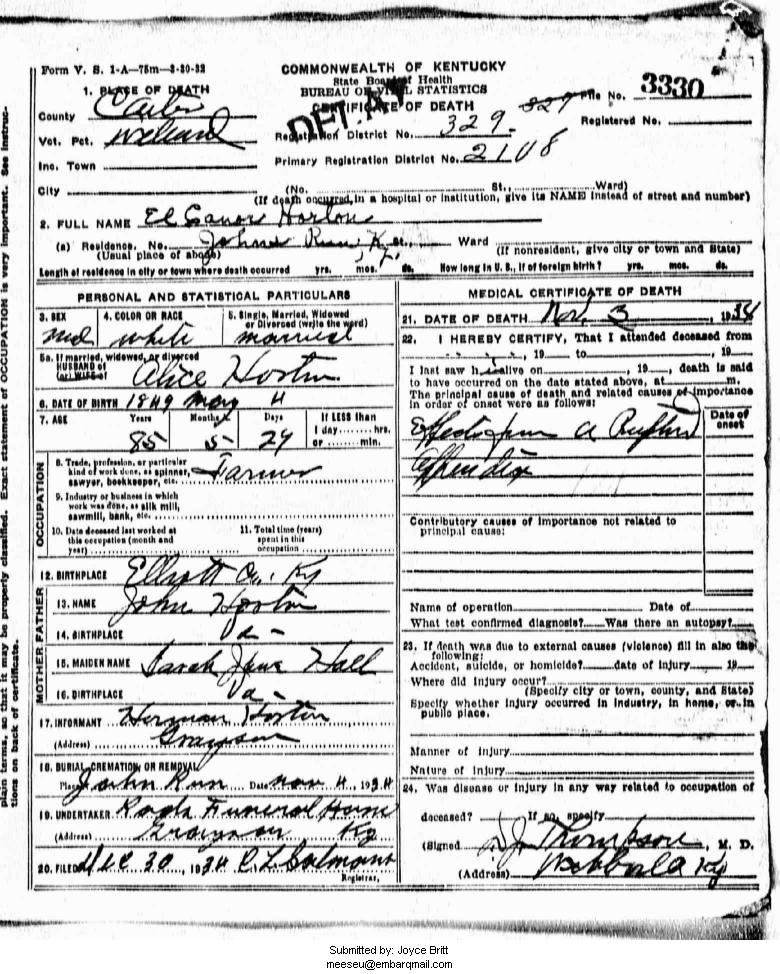 Form V. S. 1-A—75m—3-30-32
COMMONWEALTH OF KENTUCKY
State Board of Health
BUREAU OF VITAL STATISTICS
CERTIFICATE OF DEATH
File No. 3330
1. PLACE OF DEATH
County Carter
Vot. Pct.
Registration District No. 329
Registered No.
Inc. Town
Primary Registration District No. 2108
City (No. St., Ward)
(If death occurred in a hospital or institution, give its NAME instead of street and number)
2. FULL NAME Horton
(a) Residence. No. Johns Run Ky St., Ward
(Usual place of abode) (If nonresident, give city or town and State)
Length of residence in city or town where death occurred yrs. mos. ds. How long in U. S., if of foreign birth? yrs. mos. ds.
PERSONAL AND STATISTICAL PARTICULARS
3. SEX
4. COLOR OR RACE white
5. Single, Married, Widowed
or Divorced (write the word)
married
5a. If married, widowed, or divorced
HUSBAND of
(or) WIFE of Alice Horton
6. DATE OF BIRTH 1849 May 4
7. AGE Years Months Days If LESS than
1 day........hrs.
or ........ min.
85 5 29
OCCUPATION
8. Trade, profession, or particular
kind of work done, as spinner,
sawyer, bookkeeper, etc. Farmer
9. Industry or business in which
work was done, as silk mill,
sawmill, bank, etc.
10. Date deceased last worked at
this occupation (month and
year)
11. Total time (years)
spent in this
occupation
12. BIRTHPLACE Elliott Co. Ky
FATHER
13. NAME John Horton
14. BIRTHPLACE Va -
MOTHER
15. MAIDEN NAME Sarah Jane Hall
16. BIRTHPLACE Va -
17. INFORMANT Herman Horton
(Address) Grayson
18. BURIAL, CREMATION OR REMOVAL
Place John Run Date Nov 4, 1934
19. UNDERTAKER Funeral Home
(Address) Grayson Ky
20. FILED Dec 30, 1934
Registrar,
MEDICAL CERTIFICATE OF DEATH
21. DATE OF DEATH Nov. 3, 1934
22. I HEREBY CERTIFY, That I attended deceased from
, 19 to , 19
I last saw h alive on , 19 , death is said
to have occurred on the date stated above, at m.
The principal cause of death and related causes of importance
in order of onset were as follows:
Date of
onset
Effects from a
appendix
Contributory causes of importance not related to
principal cause:
Name of operation Date of
What test confirmed diagnosis? Was there an autopsy?
23. If death was due to external causes (violence) fill in also the
following:
Accident, suicide, or homicide? date of injury 19
Where did injury occur?
(Specify city or town, county, and State)
Specify whether injury occurred in industry, in home, or in
public place.
Manner of injury
Nature of injury
24. Was disease or injury in any way related to occupation of
deceased? If so, specify
(Signed) J Thompson, M. D.
(Address) Ky
plain terms, so that it may be properly classified. Exact statement of OCCUPATION is very important. See instruc-
tions on back of certificate.
Submitted by: Joyce Britt
meeseu@embarqmail.com